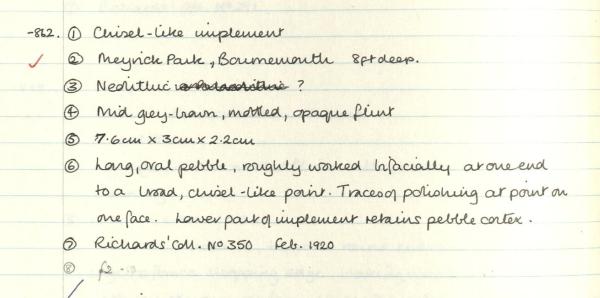 -862. ① Chisel-like implement
② Meyrick Park, Bournemouth 8ft deep.
③ Neolithic ?
④ Mid grey-brown, mottled, opaque flint
⑤ 7.6cm x 3cm x 2.2cm
⑥ Long, oval pebble, roughly worked bifacially at one end
to a broad, chisel-like point. Traces of polishing at point on
one face. Lower part of implement retains pebble cortex.
⑦ Richards' Coll. No 350 Feb. 1920
⑧